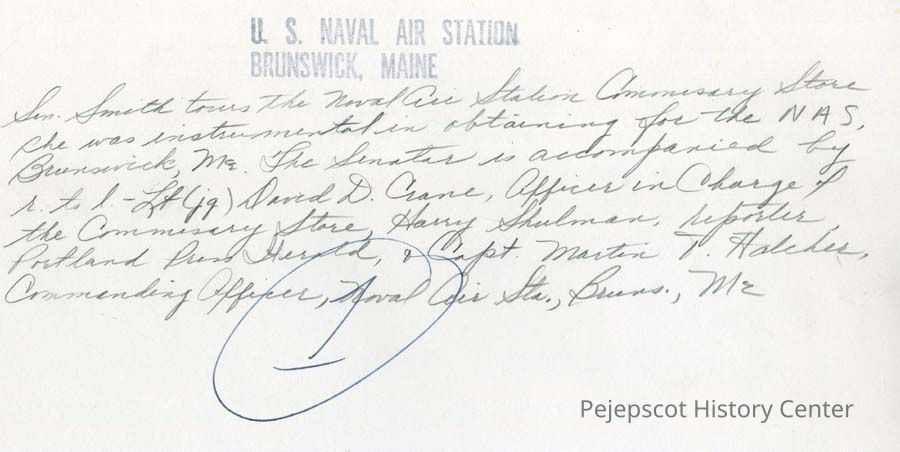 U. S. NAVAL AIR STATION
BRUNSWICK, MAINE
Sen. Smith tours the Naval Air Station Commisary Store
she was instrumental in obtaining for the NAS,
Brunswick, Me. The Senator is accompanied by
r. to l. - Lt (jg) David D. Crane, Officer in Charge of
the Commisary Store, Harry Shulman, reporter
Portland Press Herald, & Capt. Martin T. Hatcher,
Commanding Officer, Naval Air Sta., Bruns., Me
1
Pejepscot History Center